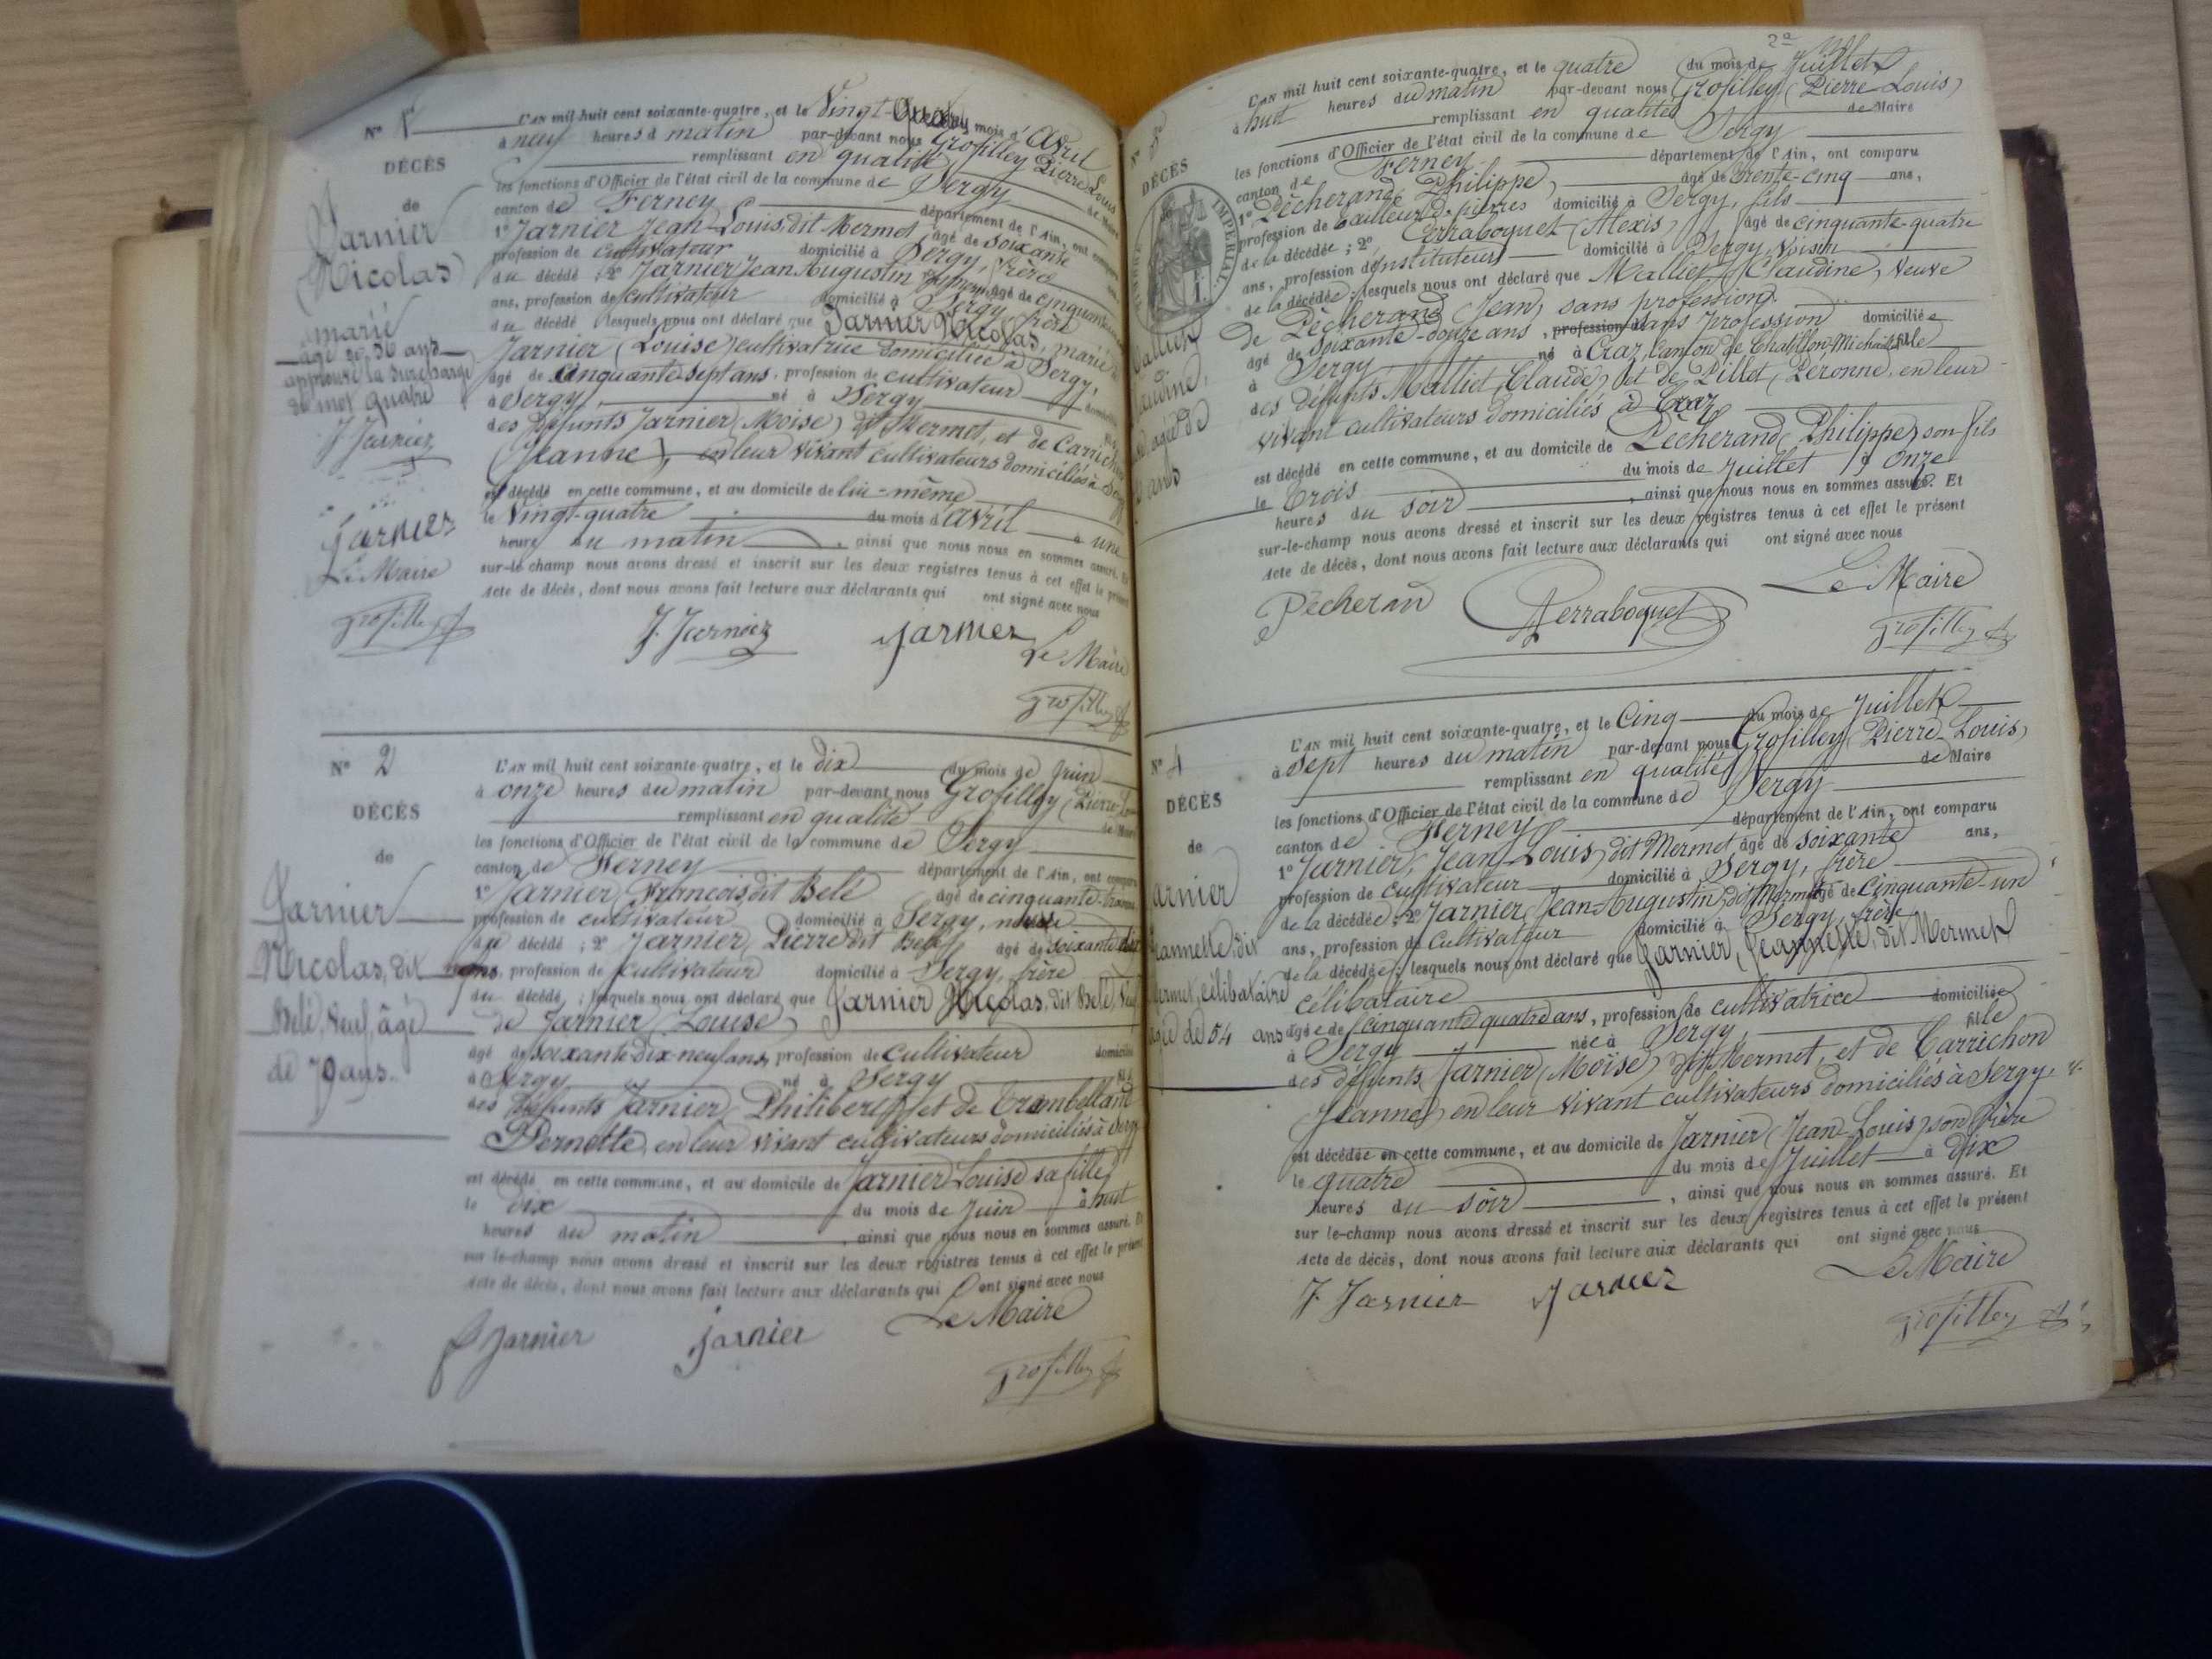 Nº 1
DÉCÈS
de
Jarnier
(Nicolas)
marié
âgé de 56 ans
approuvé la surcharge
du mot quatre
J Jarnier
Jarnier
Le Maire
Grosfilley
L'AN mil huit cent soixante-quatre, et le Vingt-quatre du mois d'Avril
à neuf heures du matin par-devant nous Grosfilley Pierre Louis
remplissant en qualité de Maire
les fonctions d'Officier de l'état civil de la commune de Sergy
canton de Ferney département de l'Ain, ont comparu
1º Jarnier Jean-Louis, dit Mermet âgé de soixante
profession de cultivateur domicilié à Sergy, frère
du décédé ; 2º Jarnier Jean Augustin âgé de cinquante
ans, profession de cultivateur domicilié à Sergy, frère
du décédé lesquels nous ont déclaré que Jarnier Nicolas, marié à
Jarnier (Louise) cultivatrice domiciliée à Sergy,
âgé de cinquante-sept ans, profession de cultivateur
à Sergy, né à Sergy
des défunts Jarnier (Moïse) dit Mermet, et de Carrichon
(Jeanne), en leur vivant cultivateurs domiciliés à Sergy
est décédé en cette commune, et au domicile de lui-même
le Vingt-quatre du mois d'avril à une
heure du matin, ainsi que nous nous en sommes assuré. Et
sur-le champ nous avons dressé et inscrit sur les deux registres tenus à cet effet le présent
Acte de décès, dont nous avons fait lecture aux déclarants qui ont signé avec nous
J. Jarnier Jarnier Le Maire
Grosfilley
Nº 2
DÉCÈS
de
Jarnier
Nicolas, dit
Belé, Veuf, âgé
de 79 ans.
L'AN mil huit cent soixante-quatre, et le dix du mois de juin
à onze heures du matin par-devant nous Grosfilley (Pierre-Louis
remplissant en qualité de Maire
les fonctions d'Officier de l'état civil de la commune de Sergy
canton de Ferney département de l'Ain, ont comparu
1º Jarnier, François, dit Belé âgé de cinquante-trois
profession de cultivateur domicilié à Sergy, neveu
du décédé ; 2º Jarnier, Pierre dit Belé âgé de soixante dix
ans, profession de cultivateur domicilié à Sergy, frère
du décédé ; lesquels nous ont déclaré que Jarnier Nicolas, dit Belé, Veuf
de Jarnier (Louise)
âgé de soixante dix-neuf ans, profession de cultivateur domicilié
à Sergy né à Sergy fils
des défunts Jarnier, Philibert, et de Trambellant
Pernette, en leur vivant cultivateurs domiciliés à Sergy
est décédé en cette commune, et au domicile de Jarnier Louise sa fille
le dix du mois de Juin à huit
heures du matin, ainsi que nous nous en sommes assuré. Et
sur le-champ nous avons dressé et inscrit sur les deux registres tenus à cet effet le présent
Acte de décès, dont nous avons fait lecture aux déclarants qui ont signé avec nous
Jarnier Jarnier Le Maire
Grosfilley
Nº 3
DÉCÈS
TIMBRE IMPÉRIAL
ans
L'AN mil huit cent soixante-quatre, et le quatre du mois de Juillet
à huit heures du matin par-devant nous Grosfilley (Pierre-Louis)
remplissant en qualité de Maire
les fonctions d'Officier de l'état civil de la commune de Sergy
canton de Ferney département de l'Ain, ont comparu
1º Pècherand, Philippe, âgé de trente-cinq ans,
profession de tailleur de pierres domicilié à Sergy, fils
de la décédée ; 2º Perraboquet (Alexis) âgé de cinquante-quatre
ans, profession d'Instituteur domicilié à Sergy, Voisin
de la décédée, lesquels nous ont déclaré que Malliet, Claudine, veuve
de Pècherand (Jean) sans profession.
âgé de soixante-douze ans, profession de sans profession domiciliée
à Sergy né à Craz, Canton de Chatillon-Michaille fille
des défunts Malliet (Claude) et de Pillet, Peronne, en leur
vivant cultivateurs domiciliés à Craz
est décédé en cette commune, et au domicile de Pècherand, Philippe, son fils
le trois du mois de Juillet à onze
heures du soir, ainsi que nous nous en sommes assuré. Et
sur-le-champ nous avons dressé et inscrit sur les deux registres tenus à cet effet le présent
Acte de décès, dont nous avons fait lecture aux déclarants qui ont signé avec nous
Pècheran Perraboquet Le Maire
Grosfilley
Nº 4
DÉCÈS
de
arnier
Jeannette, dit
Mermet, célibataire
âgée de 54 ans
L'AN mil huit cent soixante-quatre, et le Cinq du mois de Juillet
à sept heures du matin par-devant nous Grosfilley (Pierre-Louis)
remplissant en qualité de Maire
les fonctions d'Officier de l'état civil de la commune de Sergy
canton de Ferney département de l'Ain, ont comparu
1º Jarnier, Jean Louis, dit Mermet, âgé de soixante ans,
profession de cultivateur domicilié à Sergy, frère
de la décédée, 2º Jarnier, Jean-Augustin, dit Mermet âgé de Cinquante-un
ans, profession de Cultivateur domicilié à Sergy, frère
de la décédée ; lesquels nous ont déclaré que Jarnier, Jeannette, dit Mermet
célibataire
âgée de cinquante quatre ans, profession de cultivatrice domiciliée
à Sergy née à Sergy, fille
des défunts Jarnier (Moïse) dit Mermet, et de Carrichon
Jeanne, en leur vivant cultivateurs domiciliés à Sergy,
est décédée en cette commune, et au domicile de Jarnier (Jean-Louis) son frère
le quatre du mois de Juillet à dix
heures du soir, ainsi que nous nous en sommes assuré. Et
sur le-champ nous avons dressé et inscrit sur les deux registres tenus à cet effet le présent
Acte de décès, dont nous avons fait lecture aux déclarants qui ont signé avec nous
J. Jarnier Jarnier Le Maire
Grosfilley